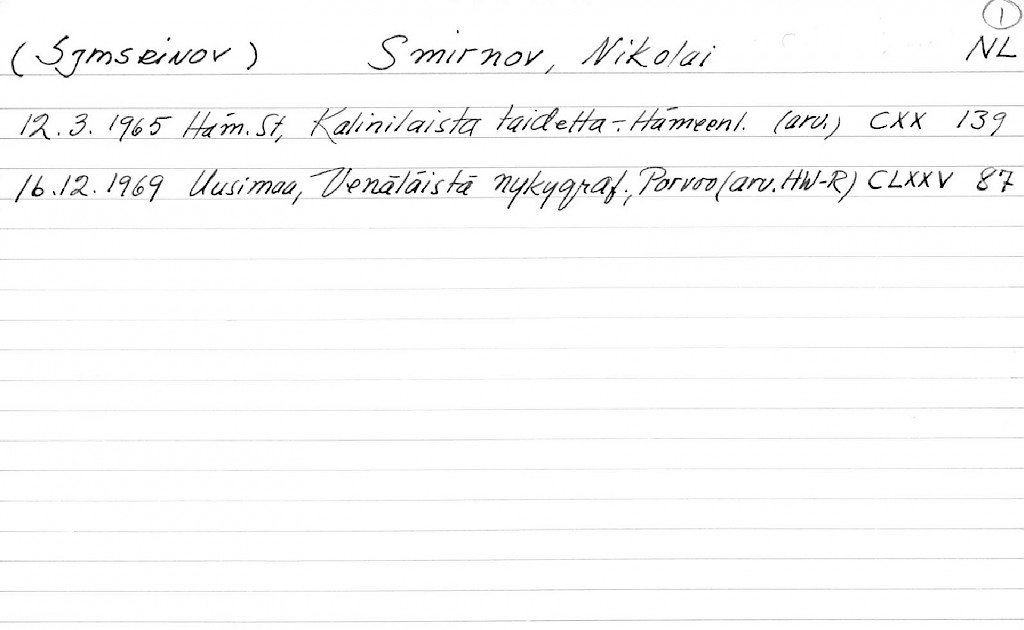 1
(Sjmseinov) Smirnov, Nikolai NL
12.3.1965 Häm.St, Kalinilaista taidetta-, Hämeenl. (arv.) CXX 139
16.12.1969 Uusimaa, Venäläistä nykygraf., Porvoo (arv. HW-R) CLXXV 87